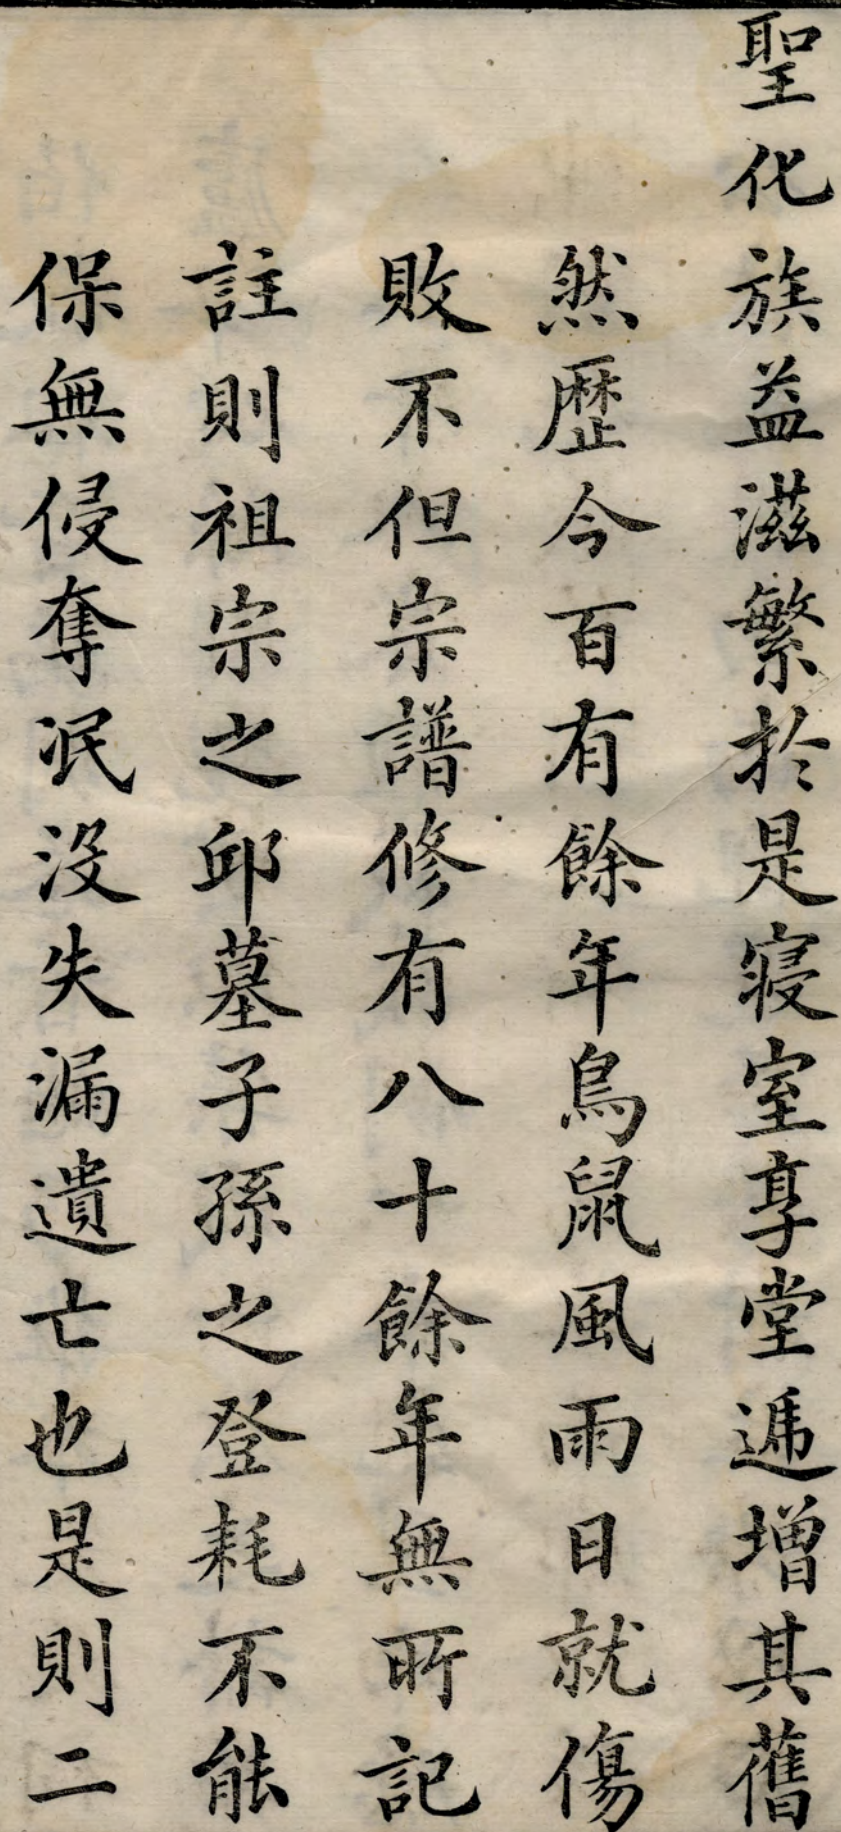 聖化族益滋繁於是寢室享堂遞增其舊
然歷今百有餘年鳥鼠風雨日就傷
敗不但宗譜修有八十餘年無所記
註則祖宗之邱墓子孫之登耗不能
保無侵奪泯没失漏遺亡也是則二